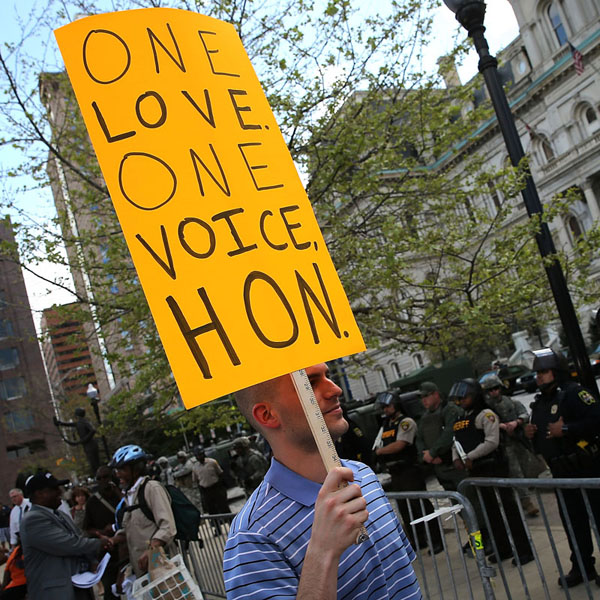 ONE
LOVE.
ONE
VOICE,
HON.
SHERIFF